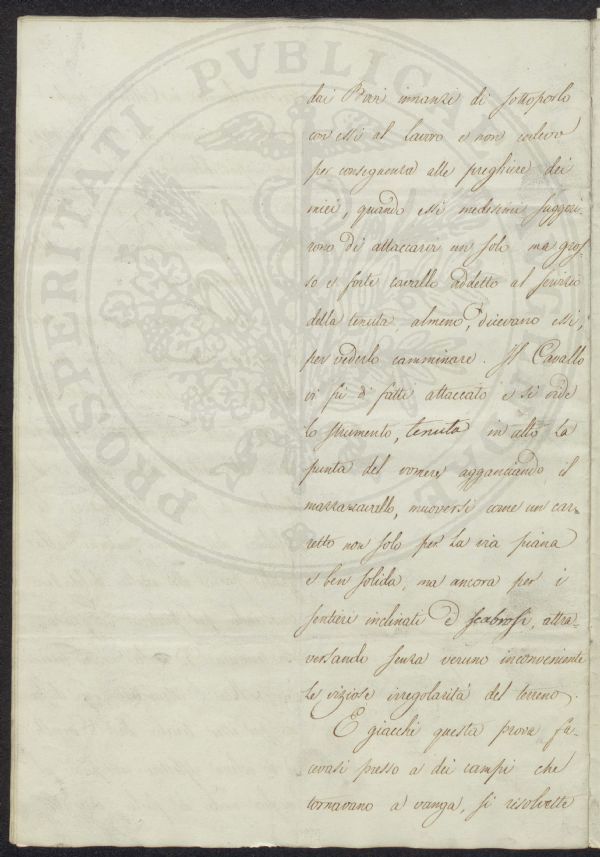 PROSPERITATI PVBLICAE
dai Bovi innanzi di sottoporlo
con essi al lavoro e non cedevo
per conseguenza alle preghiere dei
miei, quando essi medesimi suggeri-
rono di attaccarvi un solo ma gros-
so e forte cavallo addetto al servizio
della tenuta almeno, dicevano essi,
per vederlo camminare. Il Cavallo
vi fù di fatti attaccato e si vide
lo strumento, tenuta in alto la
punta del vomere agganciando il
mazzacavello, muoversi come un car-
retto non solo per la via piana
e ben solida, ma ancora per i
sentieri inclinati e scabrosi, attra-
versando senza veruno inconveniente
le viziose irregolarità del terreno.
E giacchè questa prova fa-
cevasi presso a dei campi che
tornavano a vanga, si risolvette